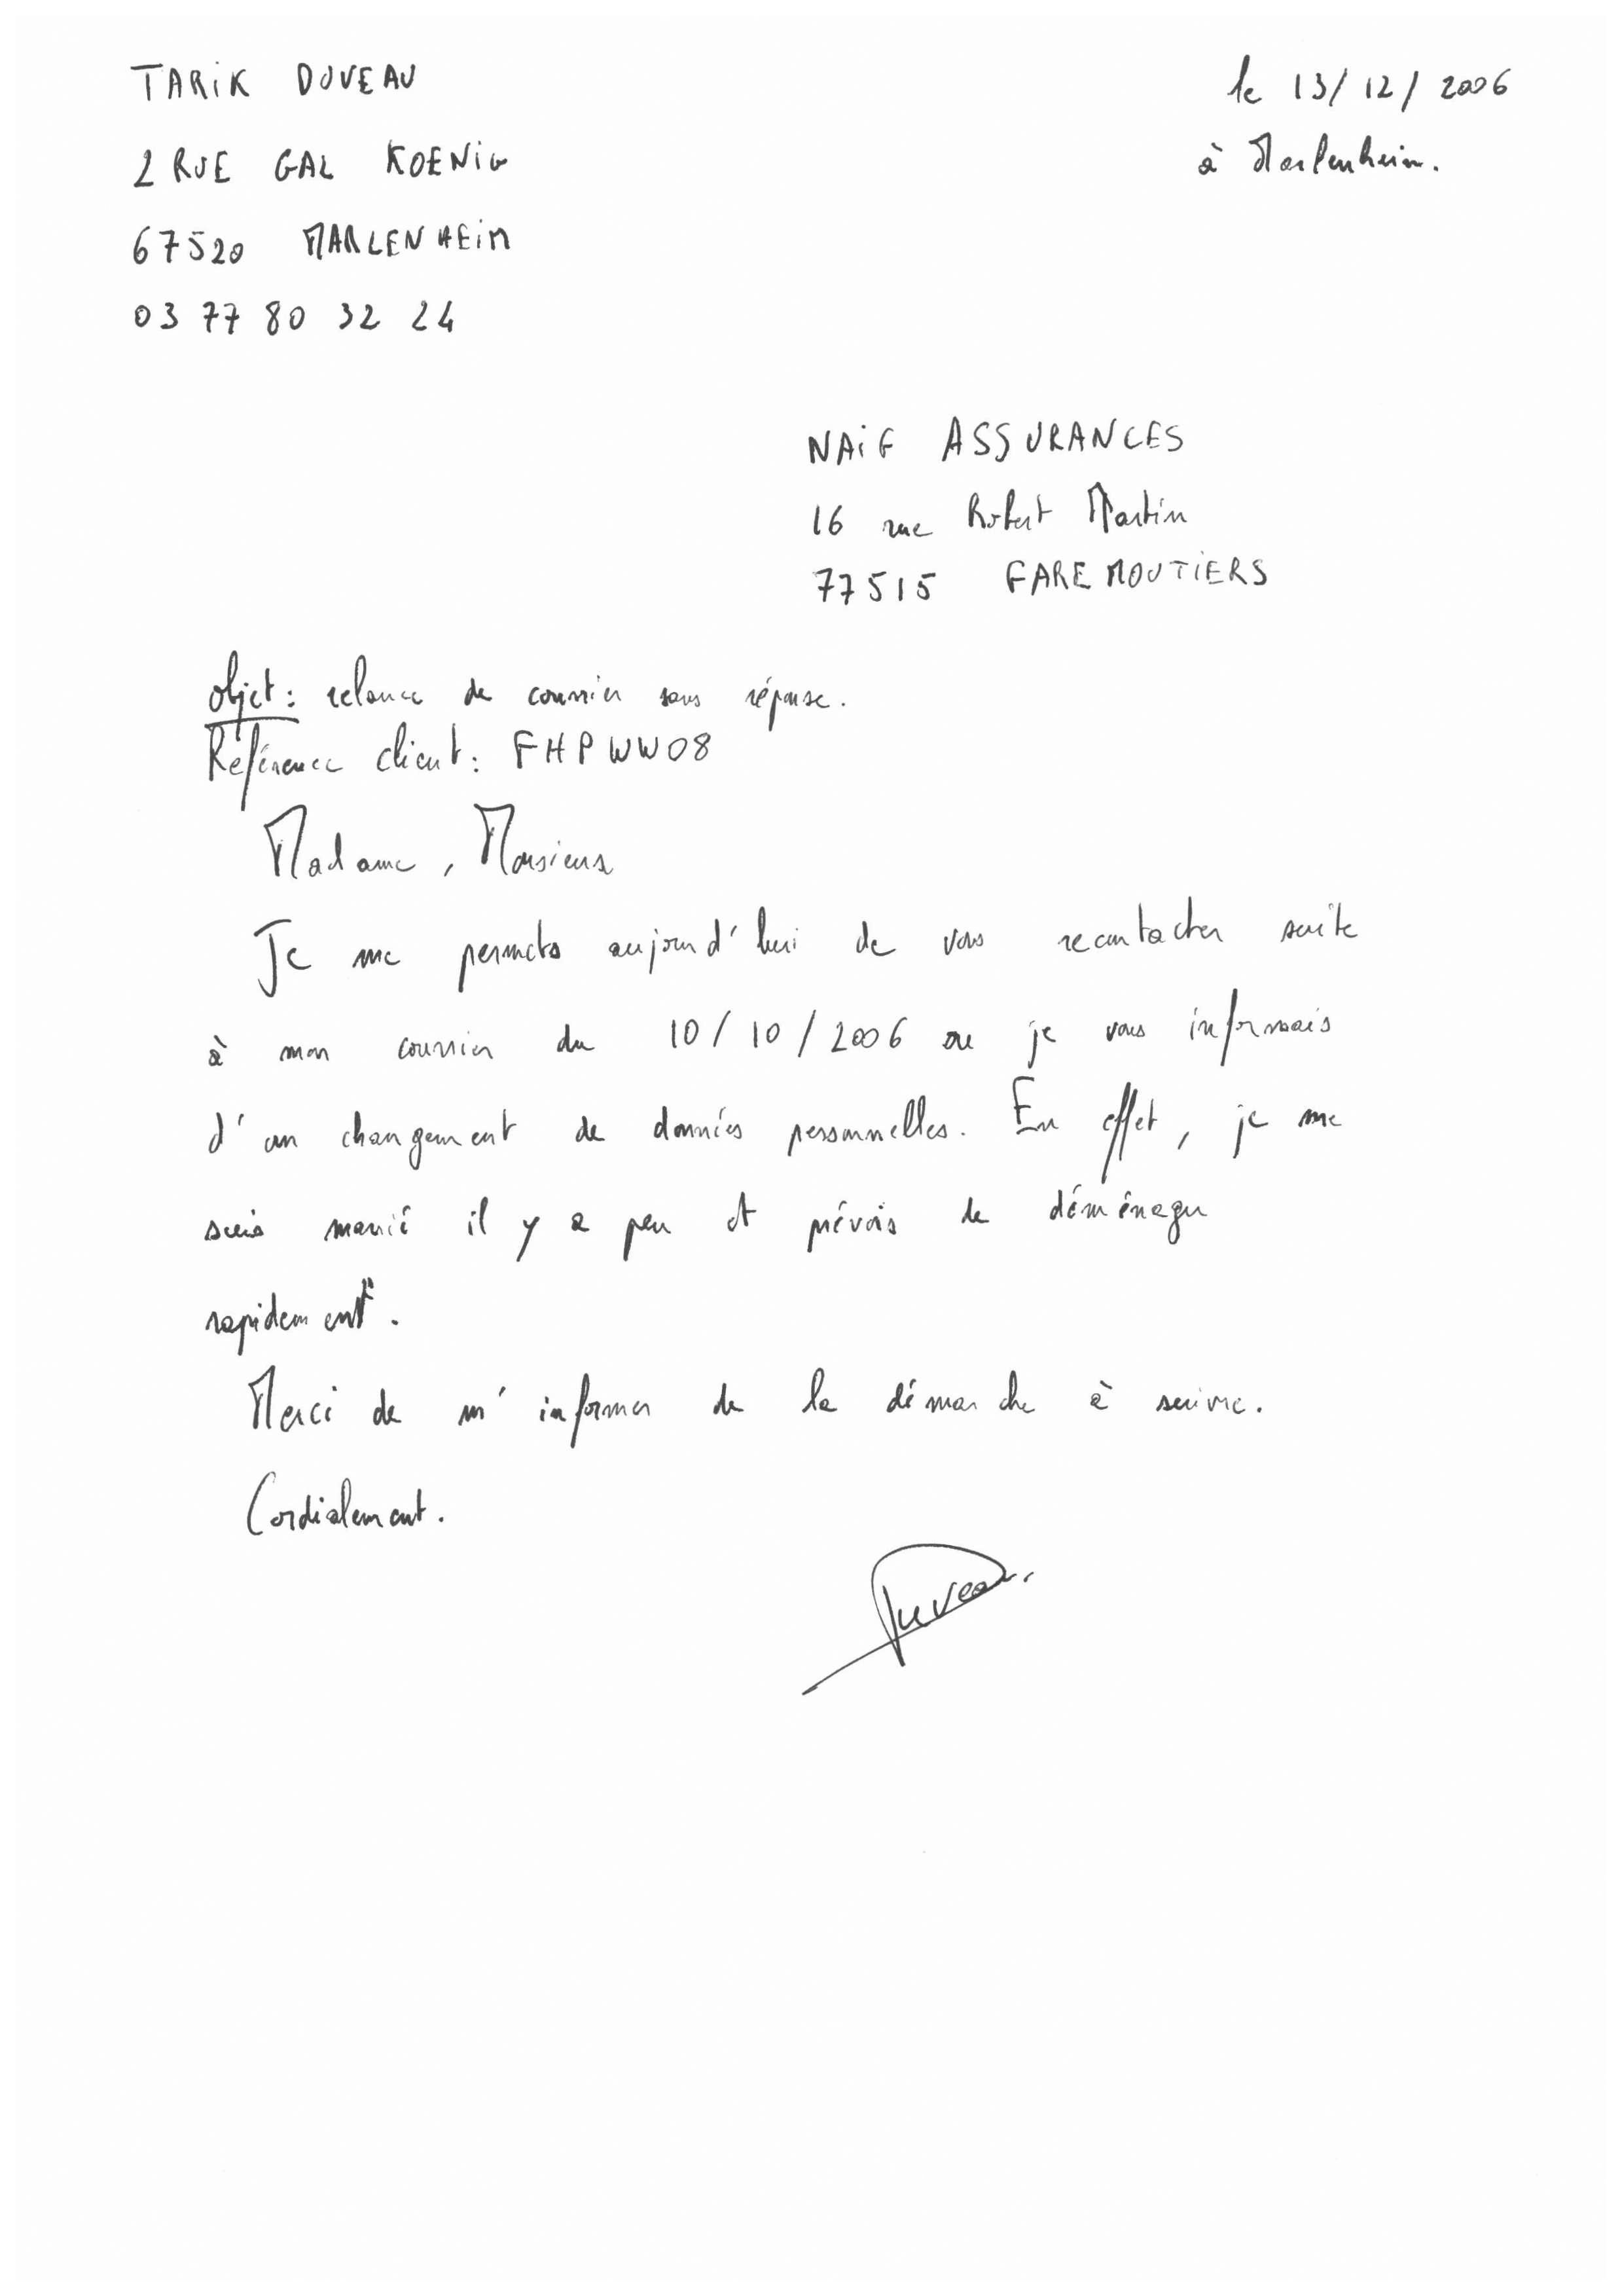 TARIK DUVEAU
le 13/12/2006
2 RUE GAL KOENIG
à Marlenheim.
67520 MARLENHEIM
03 77 80 32 24
NAIF ASSURANCES
16 rue Robert Martin
77515 FAREMOUTIERS
objet: relance de courrier sans réponse.
Référence client: FHPWW08
Madame, Monsieur
Je me permets aujourd'hui de vous recontacter suite
à mon courrier du 10/10/2006 ou je vous informais
d'un changement de données personnelles. En effet, je me
suis marié il y a peu et prévois de déménager
rapidement.
Merci de m'informer de la démarche à suivre.
Cordialement.
Duveau.